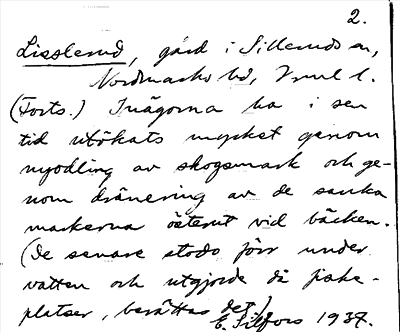 2.
Lisslerud, gård i Silleruds sn,
Nordmarks hd, Vrml l.
(Forts.) Inägorna ha i sen
tid utökats mycket genom
nyodling av skogsmark och ge-
nom dränering av de sanka
markerna österut vid bäcken.
(De senare stodo förr under
vatten och utgjorde då fiske-
platser, berättas det.)
E. Silfors 1937.